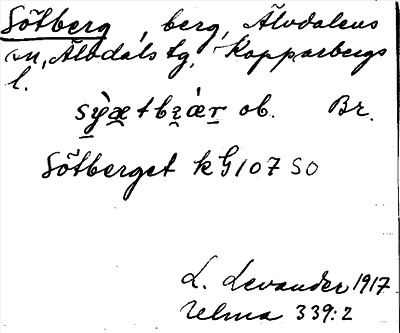 Sötberg, berg, Älvdalens
sn, Älvdals tg, Kopparbergs
l.
sy̆̀æ̠tbz̠áɐr̠ ob. Br.
Sötberget k G 107 SO
L. Levander 1917
Ulma 339:2